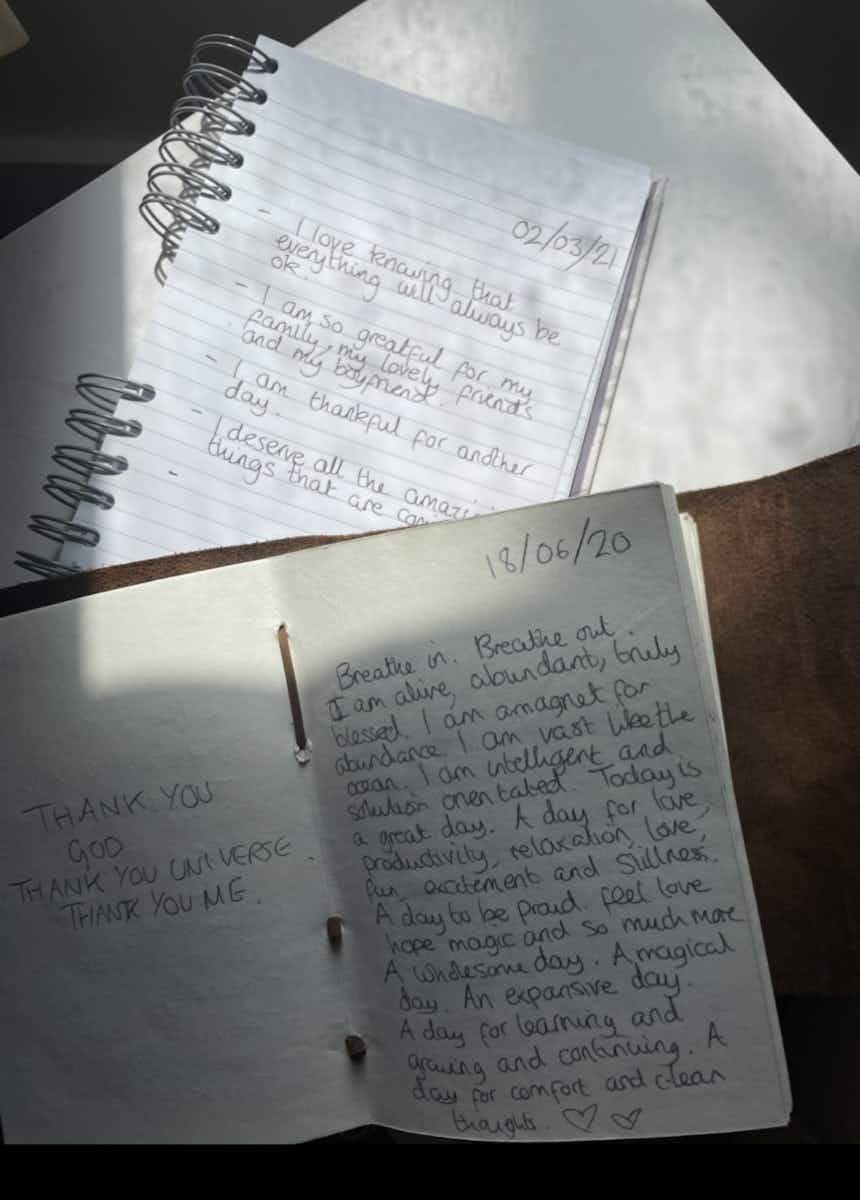 02/03/21
- I love knowing that
everything will always be
ok.
- I am so greatful for my
family, my lovely friends
and my boyfriend.
- I am thankful for another
day.
- I deserve all the
things that are
-
18/06/20
Breathe in. Breathe out.
I am alive, abundant, truly
blessed. I am a magnet for
abundance. I am vast like the
ocean. I am intelligent and
solution orientated. Today is
a great day. A day for love,
productivity, relaxation, love,
fun, excitement and stillness.
A day to be proud. feel love
hope magic and so much more
A wholesome day. A magical
day. An expansive day.
A day for learning and
growing and continuing. A
day for comfort and clean
thoughts. ♡ ♡
THANK YOU
GOD
THANK YOU UNIVERSE.
THANK YOU ME.